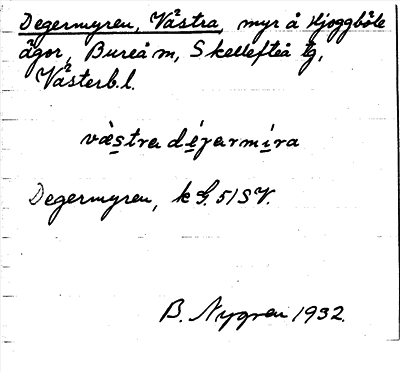 Degermyren, Västra, myr å Hjoggböle
ägor, Bureå m, Skellefteå tg,
Västerb.l.
væstra déjarmíra
Degermyren, k G. 51 SV.
B. Nygren 1932.